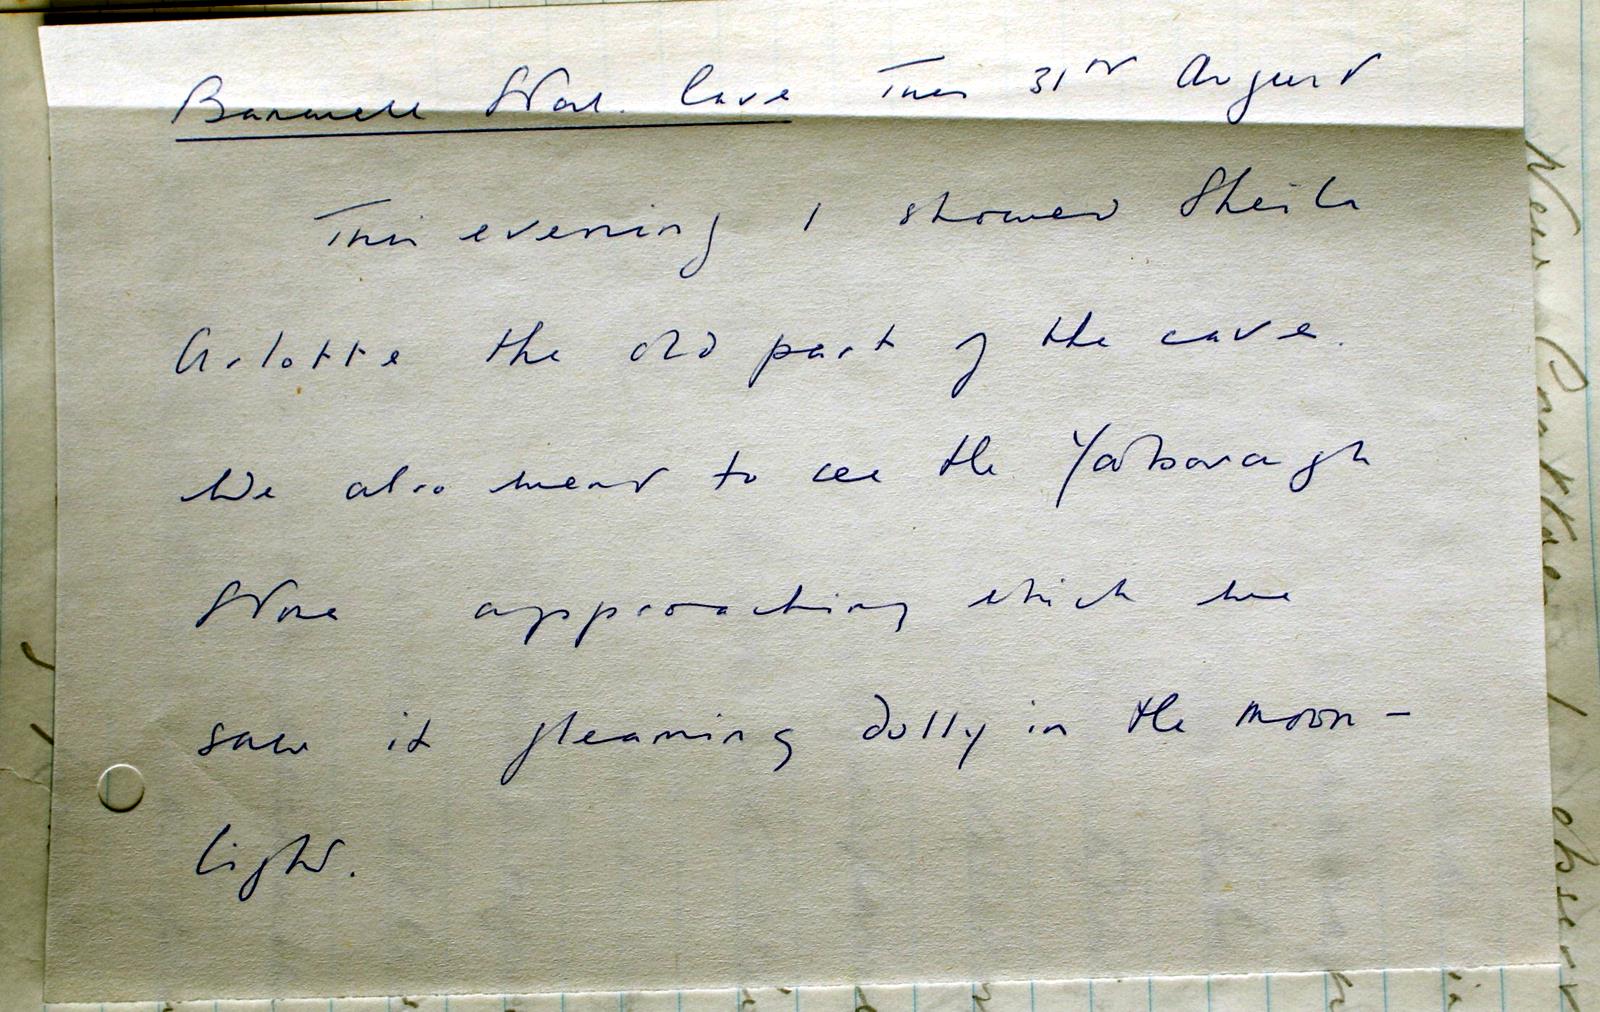 Banwell Stal. Cave Tues 31st August
This evening I showed Sheila
Arlotte the old part of the cave.
We also went to see the Yarborough
Stone approaching which we
saw it gleaming dully in the moon-
light.